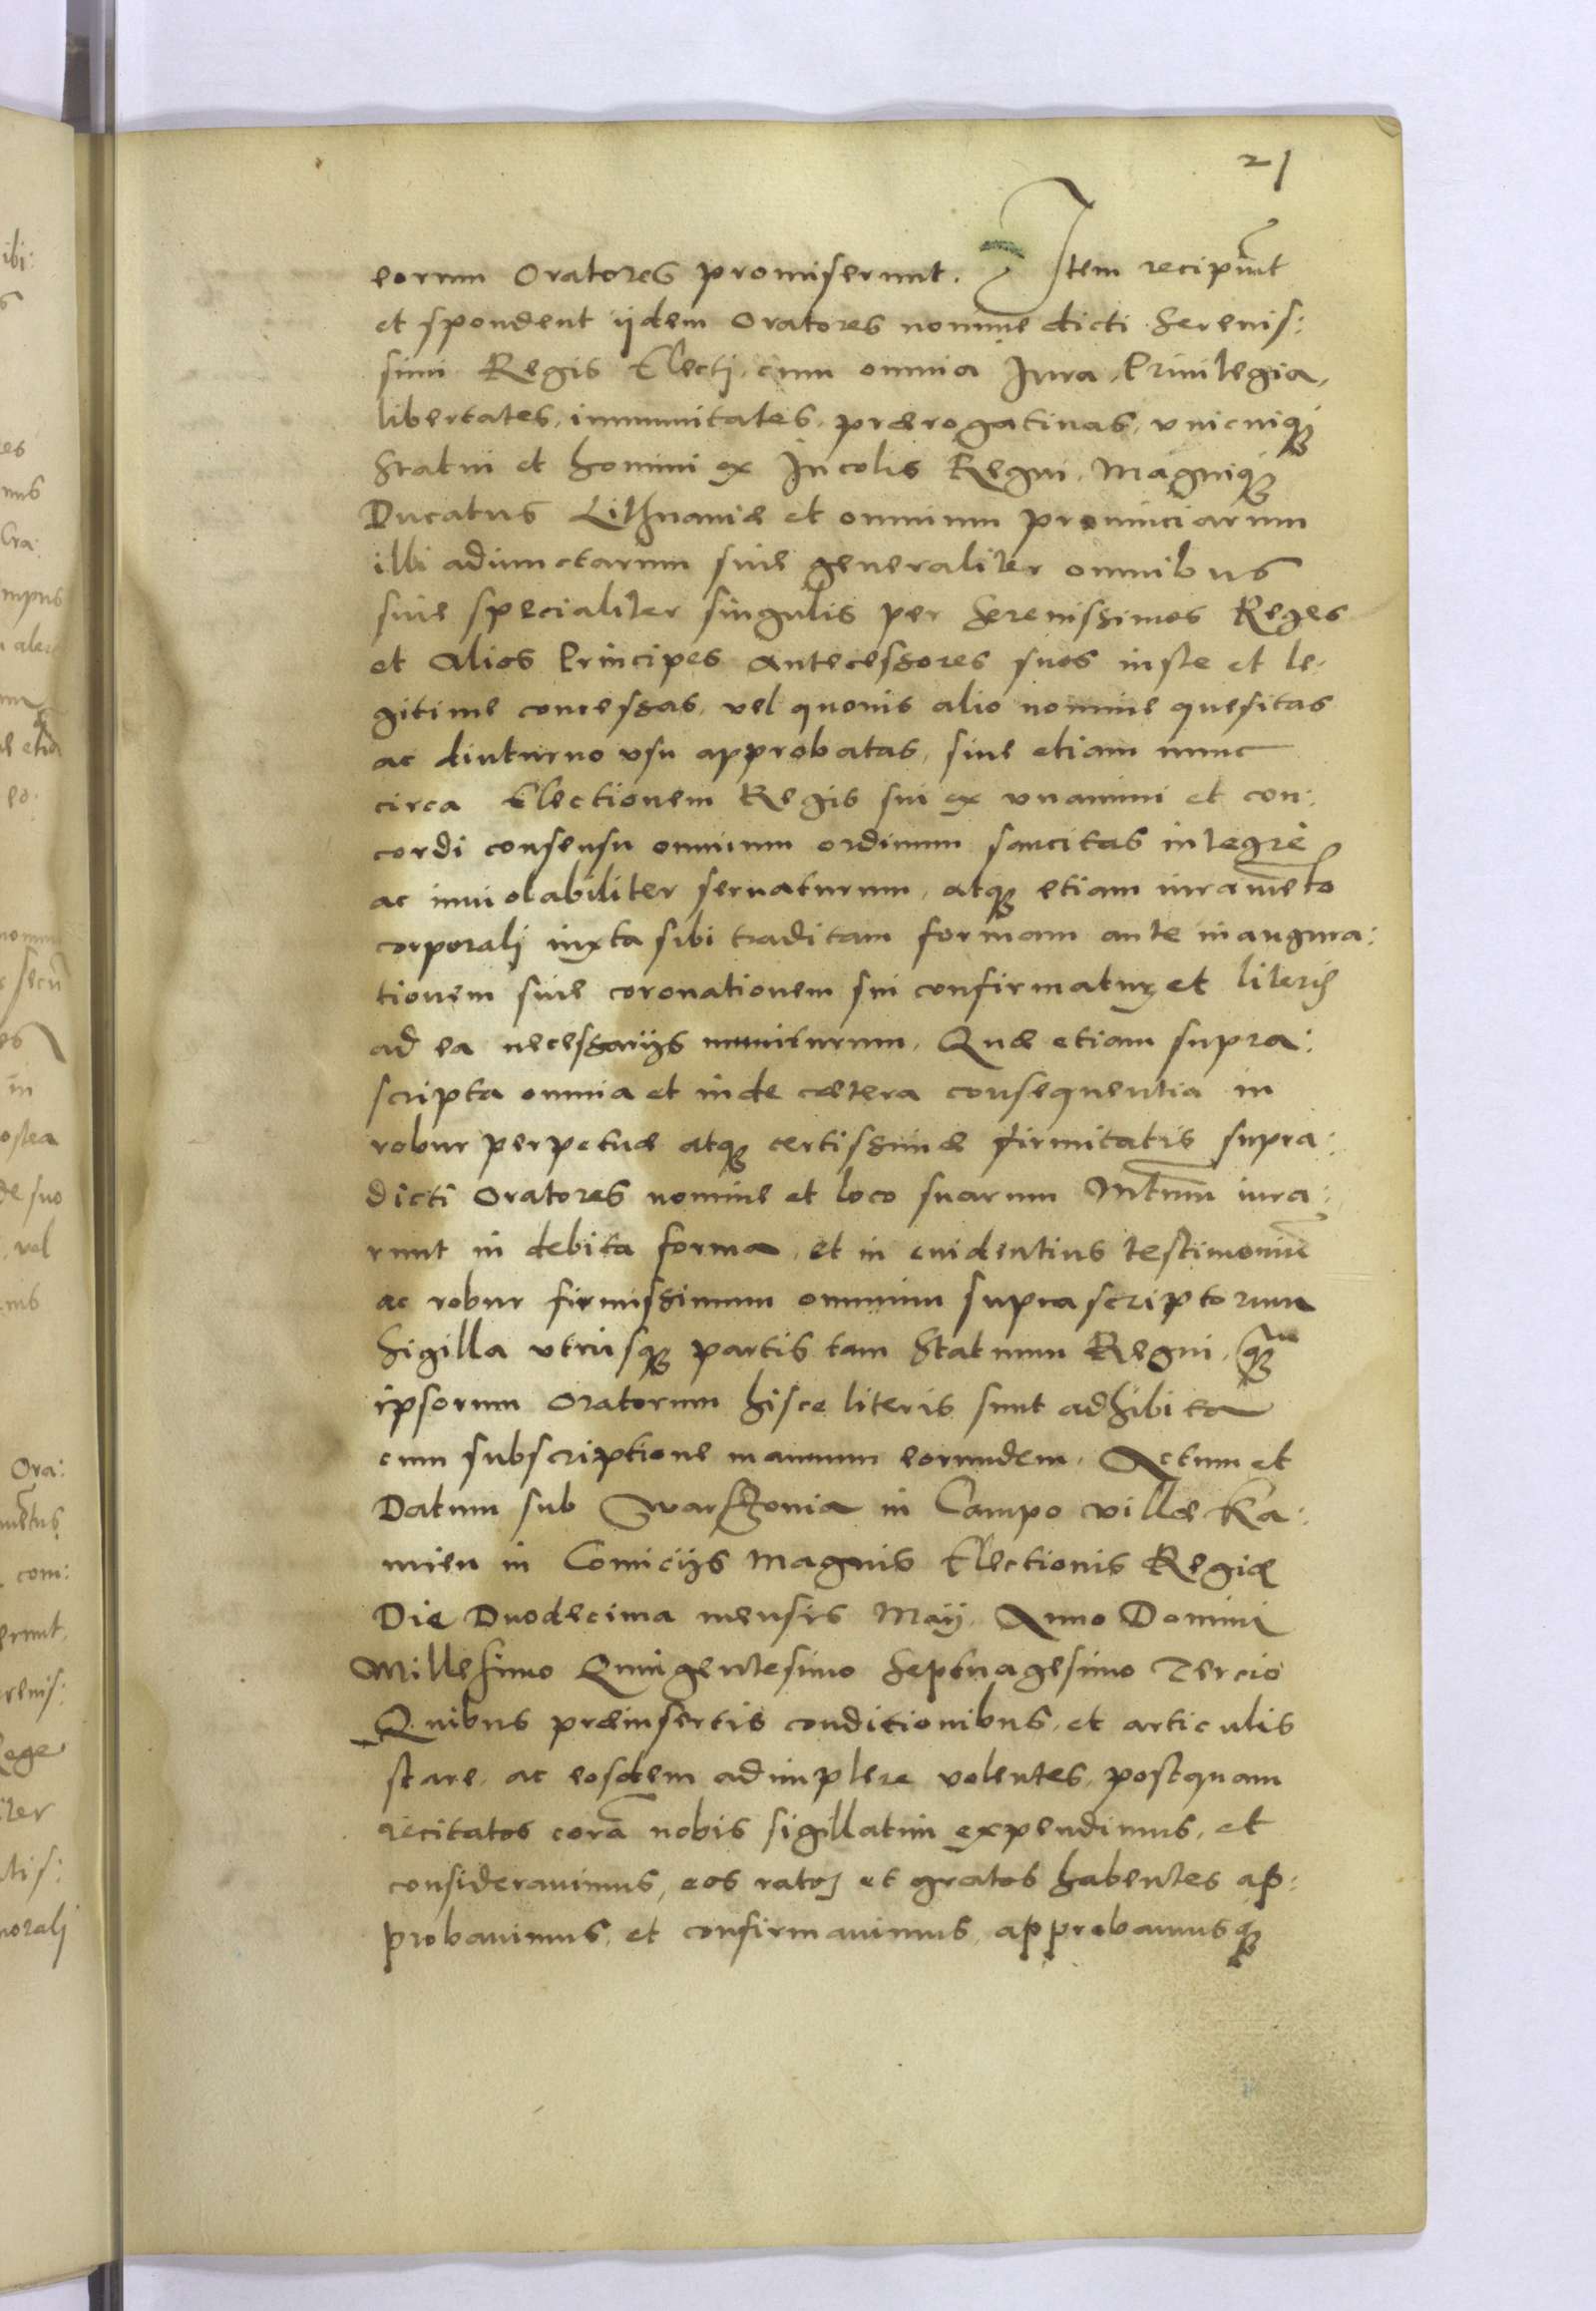 21
eorum Oratores promiserunt. Item recipiūt
et spondent ijdem Oratores nomine dicti Serenis:
simi Regis Electj, eum omnia Jura, Priuilegia,
libertates, immunitates, prærogatiuas, vnicuiq₃
Statui et homini ex Incolis Regni, Magniq₃
Ducatus Lithuaniæ et omnium prouinciarum
illi adiunctarum siue generaliter omnibus
siue specialiter singulis per Serenissimos Reges
et Alios Principes Antecessores suos iuste et le:
gitime concessas, vel quouis alio nomine quesitas
ac diuturno vsu approbatas, siue etiam nunc
circa Electionem Regis sui ex vnanimi et con:
cordi consensu omnium ordinum sancitas integrè
ac inuiolabiliter seruaturum, atq₃ etiam iuramēto
corporalj iuxta sibi traditam formam ante inaugura:
tionem siue coronationem sui confirmaturꝫ et literis
ad ea necessarijs muniturum. Quæ etiam supra:
scripta omnia et inde cætera consequentia in
robur perpetuæ atq₃ certissimæ firmitatis supra:
dicti Oratores nomine et loco suarum Mtum̄ iura:
runt in debita forma, et in euidentius testimoniū
ac robur firmissimum omnium suprascriptorum
Sigilla vtriusq₃ partis tam Statuum Regni, q₃
ipsorum Oratorum hisce literis sunt adhibita
cum subscriptione manuum eorumdem. Actum et
Datum sub Warszouia in Campo villæ Ka:
mien in Comicijs Magnis Electionis Regiæ
Die Duodecima mensis Maij. Anno Domini
Millesimo Quingentesimo Septuagesimo Tercio
Quibus præinsertis conditionibus, et articulis
stare, ac eosdem adimplere volentes, postquam
recitatos corā nobis sigillatim expendimus, et
considerauimus, eos ratos et gratos habentes ap:
probauimus, et confirmauimus, approbamusq₃